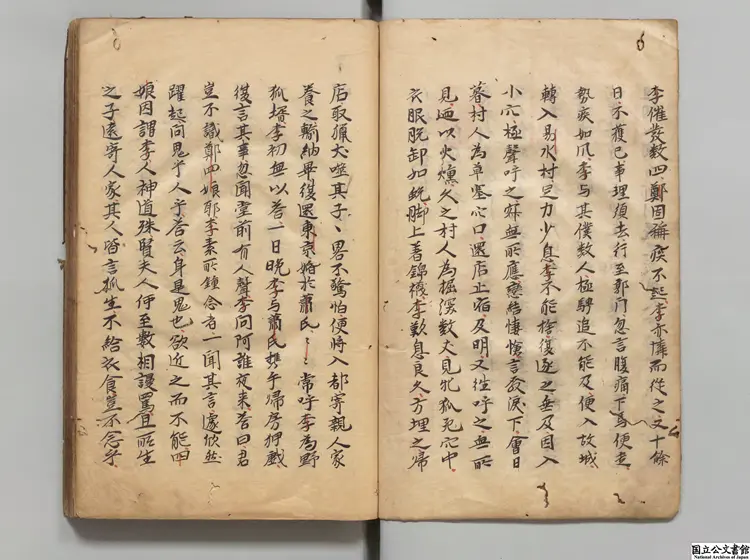 李催發數四鄭固稱疾不起李亦憐而從之又十餘
日不獲已事理須去行至郭門忽言腹痛下馬便走
勢疾如風李与其僕數人極騁追不能及便入故城
轉入易水村足力少息李不能捨復逐之垂及因入
小穴極聲呼之寂無所應戀結悽愴言發淚下會日
暮村人為草塞穴口還店止宿及明又往呼之無所
見廼以火燻久之村人為掘深數丈見牝狐死穴中
衣服脫卸如蛻脚上着錦襪李歎息良久方埋之歸
店取獵犬噬其子〻畧不驚怕便將入都寄親人家
養之輸納畢復還東京婚於蕭氏〻〻常呼李為野
狐壻李初無以荅一日晚李与蕭氏携手歸房狎戲
復言其事忽聞堂前有人聲李問阿誰夜来荅曰君
豈不識鄭四娘耶李素所鍾念者一聞其言遽欣然
躍起問鬼乎人乎荅云身是鬼也欲近之而不能四
娘因謂李人神道殊賢夫人何至數相謾罵且所生
之子遠寄人家其人皆言狐生不給衣食豈不念乎
国立公文書館
National Archives of Japan